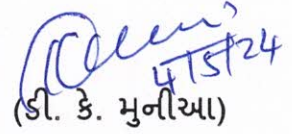 4/5/24
(ડી. કે. મુનીઆ)